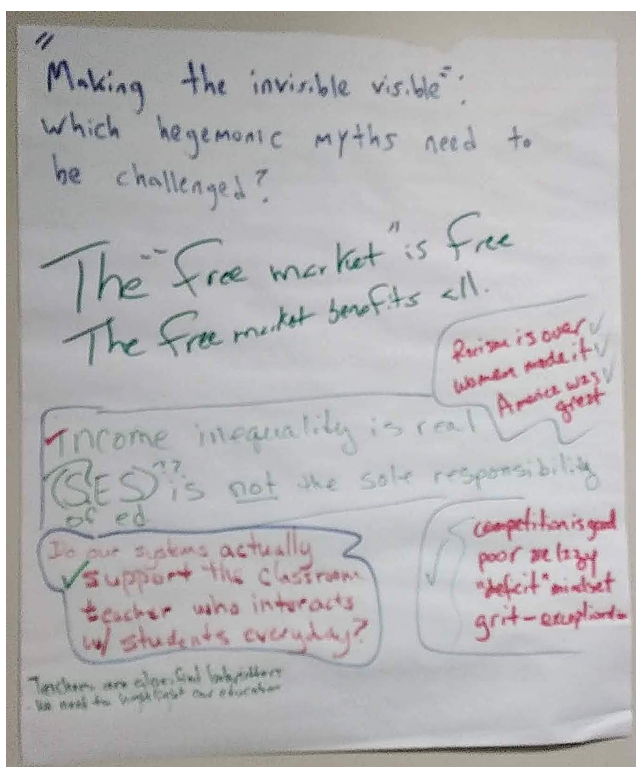 "Making the invisible visible":
Which hegemonic myths need to
be challenged?
The "free market" is free
The free market benefits all.
Racism is over ✓
women made it ✓
America was ✓
great
Income inequality is real
(SES)?? is not the sole responsibility
of ed
Do our systems actually
✓ support the classroom
teacher who interacts
w/ students everyday?
competition is good
poor are lazy
"deficit" mindset
grit-
Teachers are glorified babysitters
- We need to our education